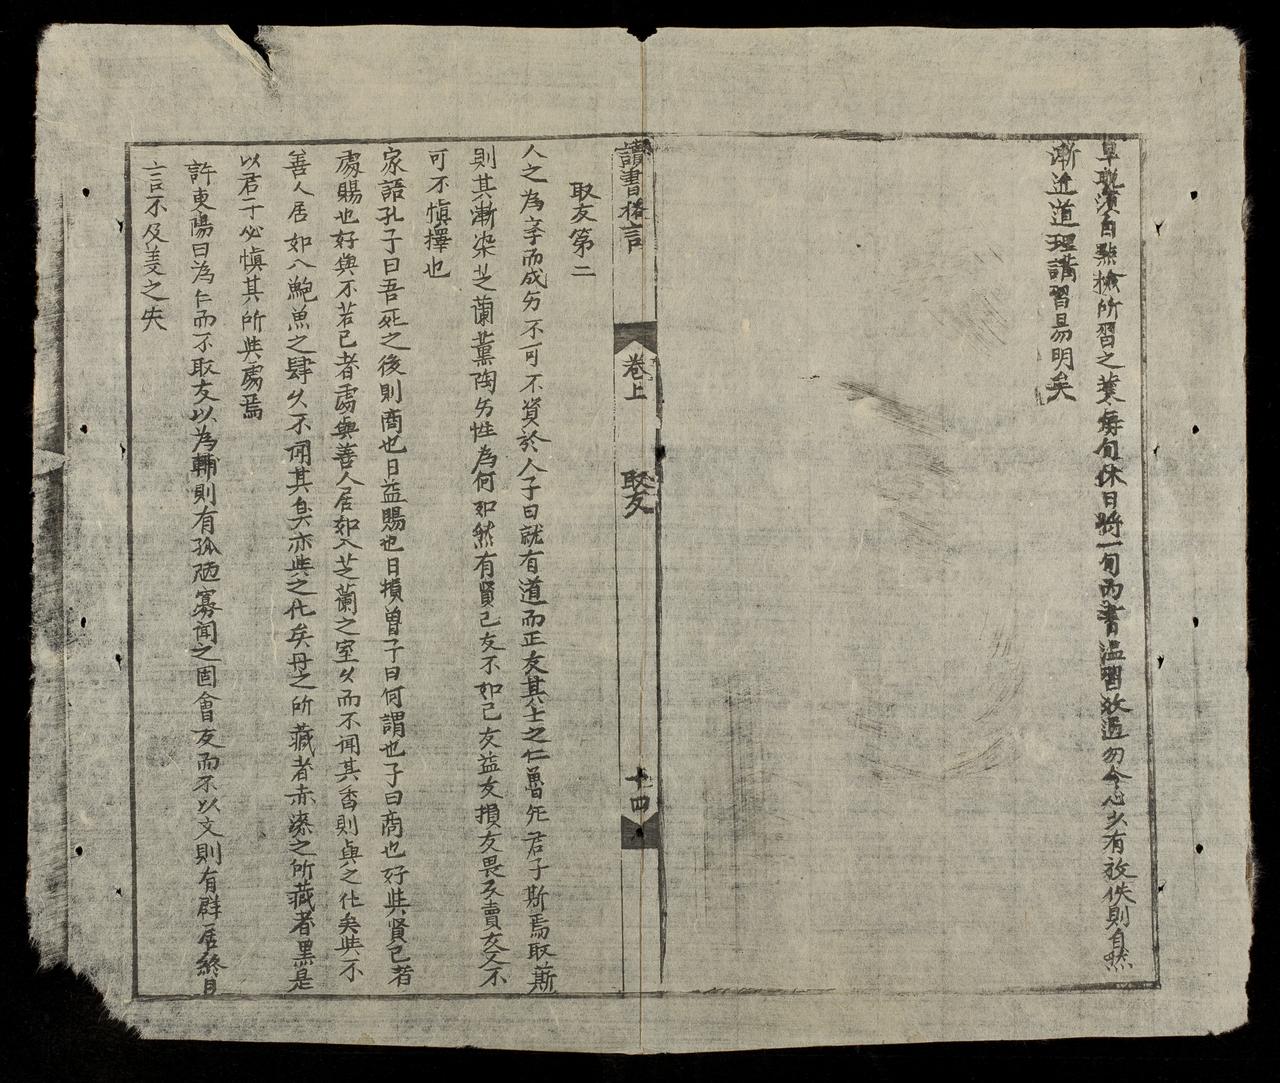 早耽濱自點檢所習之業每旬休日將一旬內書溫習放過勿令心少有放佚則自然
漸近道理講習易明矣
讀書格言
卷上
取友
十四
取友第二
人之為享而成为不可不資於人子曰就有道而正友其士之仁魯无君子斯焉取斯
則其漸染芝蘭薰陶为性為何如然有賢己友不如己友益友損友畏友賣友又不
可不慎擇也
家語孔子曰吾死之後則商也日益賜也日損曾子曰何謂也子曰商也好與賢己者
處賜也好與不若己者處與善人居如入芝蘭之室久而不闻其香則與之化矣與不
善人居如入鮑魚之肆久不闻其臭亦與之化矣丹之所藏者赤漆之所藏者黑是
以君子必慎其所與處焉
許東陽曰為仁而不取友以為輔則有孤陋寡闻之固會友而不以文則有群居終日
言不及義之失